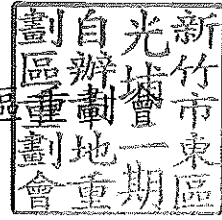 新竹市東區
光埔一期
自辦市地重
劃區重劃會
區重劃會